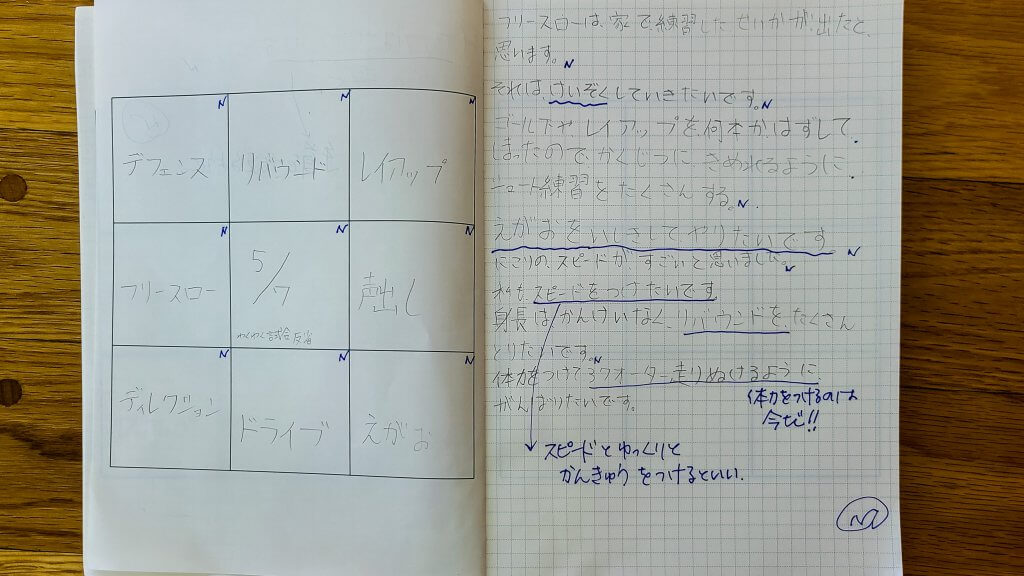 デフェンス
リバウンド
レイアップ
フリースロー
5/7
わくわく試合反省
声出し
ディレクション
ドライブ
えがお
フリースローは、家で練習したせいかが、出たと、
思います。
それは、けいぞくしていきたいです。
ゴール下や、レイアップを何本かはずして
しまったので、かくじつに、きめれるように、
シュート練習をたくさんする。
えがおをいしきしてやりたいです
にごりの、スピードが、すごいと思いました。
スピードをつけたいです
身長はかんけいなく、リバウンドを、たくさん
とりたいです。
体力をつけて3クオーター走りぬけるように
がんばりたいです。
体力をつけるのは
今だ!!
スピードとゆっくりと
かんきゅうをつけるといい.